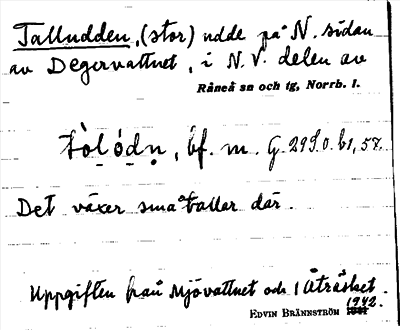 Talludden, (stor) udde på N. sidan
av Degervattnet, i N.V. delen av
Råneå sn och tg, Norrb. l.
tòlódṇ, bf. m. G. 29 S.O. b1, 57.
Det växer småtallar där.
Uppgiften från Mjövattnet och Åträsket.
1942.
EDVIN BRÄNNSTRÖM